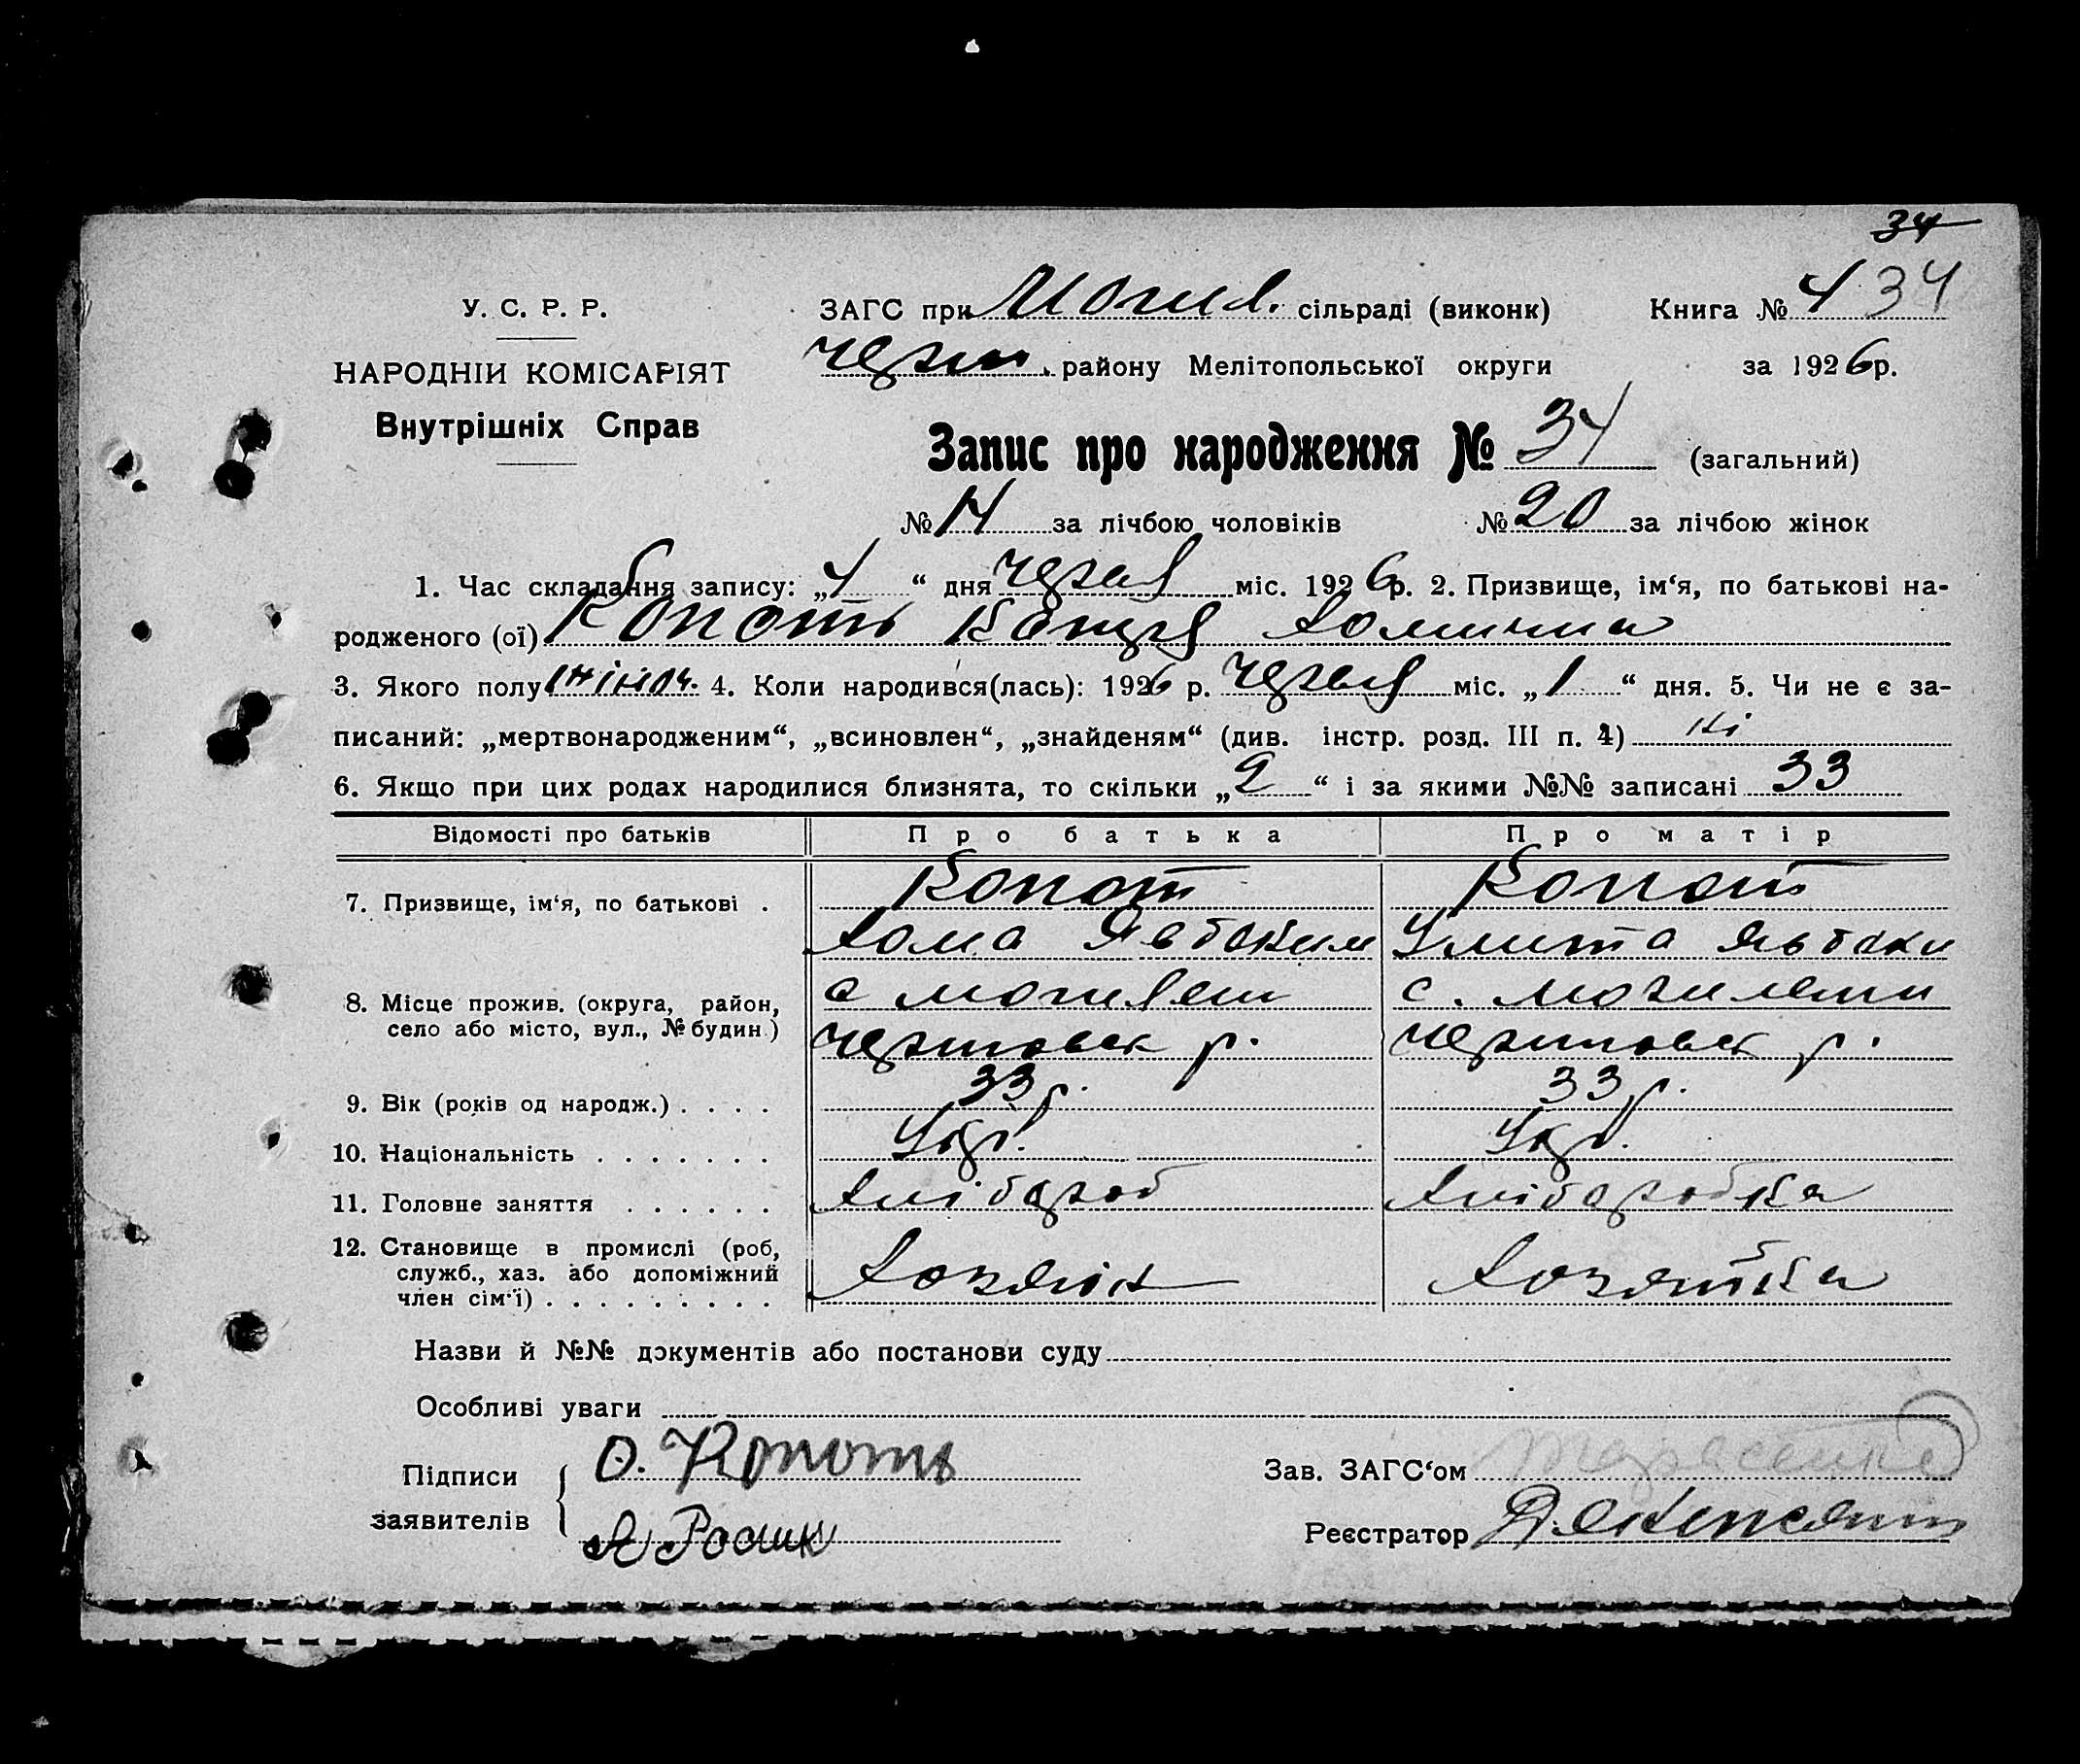 34
У. С. Р. Р.
НАРОДНІИ КОМІСАРІЯТ
Внутрішніх Справ
ЗАГС при Могил. сільраді (виконк)
Книга № 4 34
Черн. району Мелітопольської округи
за 1926 р.
Запис про народження № 34 (загальний)
№ 14 за лічбою чоловіків № 20 за лічбою жінок
1. Час складання запису: „4“ дня Червня міс. 1926 р. 2. Призвище, ім‘я, по батькові на-
родженого (ої) Копоть Катря Хомична
3. Якого полу жіноч. 4. Коли народився(лась): 1926 р. Червня міс. „1“ дня. 5. Чи не є за-
писаний: „мертвонародженим“, „всиновлен“, „знайденям“ (див. інстр. розд. III п. 4) ні
6. Якщо при цих родах народилися близнята, то скільки „2“ і за якими №№ записані 33
Відомості про батьків Про батька Про матір
7. Призвище, ім‘я, по батькові . Копот Копот
Хома Явбаким Улита Явбаки
8. Місце прожив. (округа, район, село або місто, вул., № будин.) с могиляни с. могиляни
р. р.
9. Вік (років од народж.) . . . . 33 р. 33 р.
10. Національність . . . . . . . Укр. Укр.
11. Головне заняття . . . . . . Хлібороб Хліборобка
12. Становище в промислі (роб,
служб., хаз. або допоміжний
член сім‘ї) . . . . . . . . . Хозяін Хозяйка
Назви й №№ документів або постанови суду
Особливі уваги
Підписи
заявителів
О. Копоть
Зав. ЗАГС‘ом Тарасенко
Реєстратор